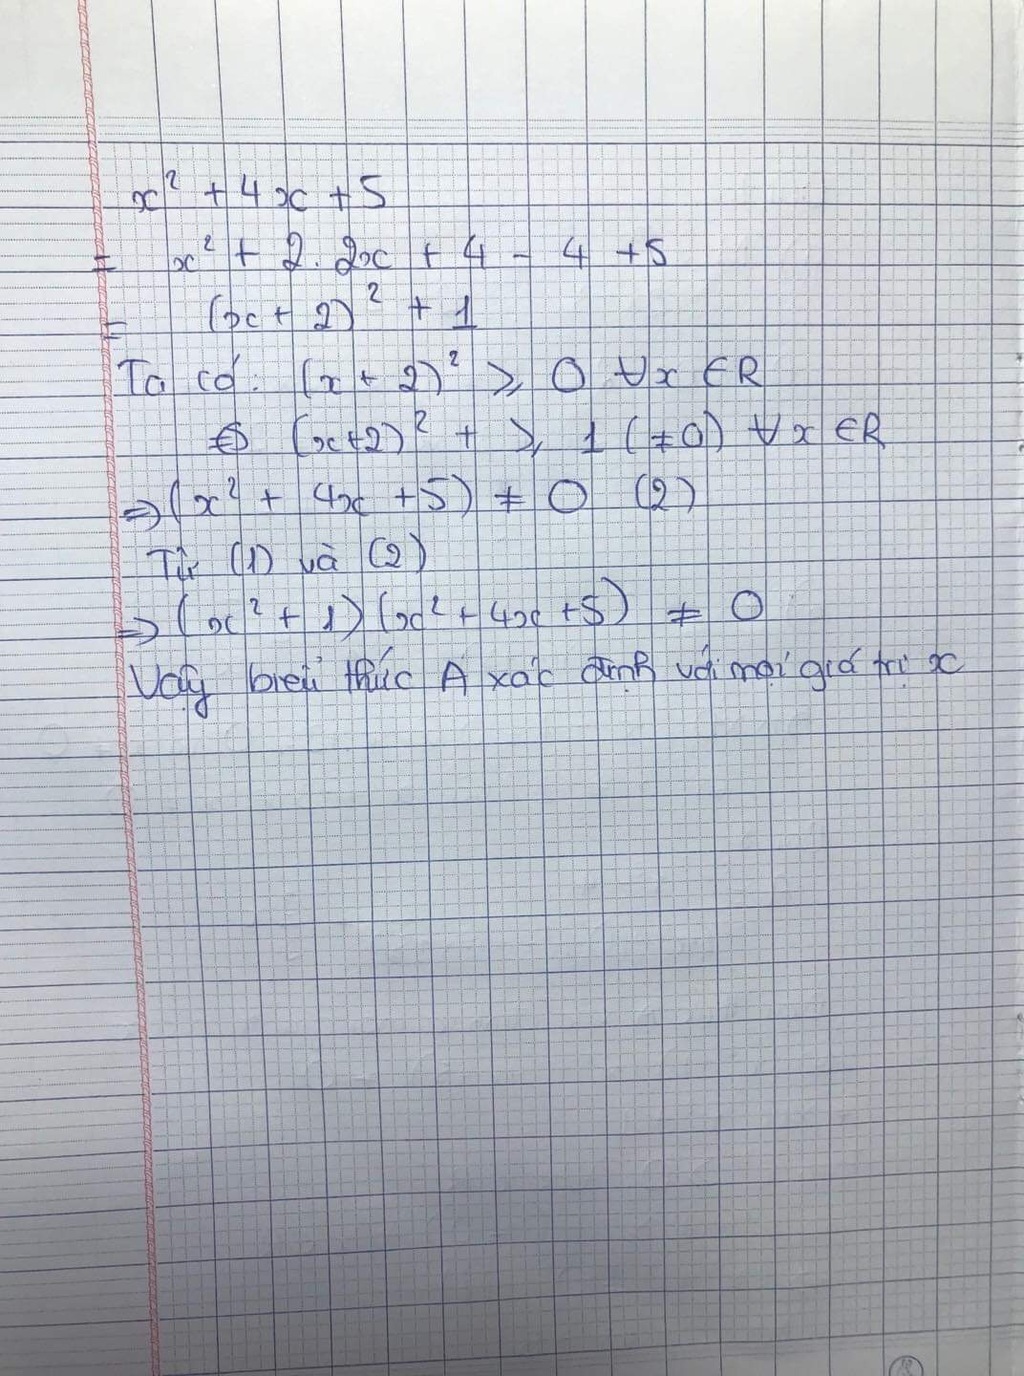 x² + 4x + 5
= x² + 2. 2x + 4 - 4 + 5
= (x + 2)² + 1
Ta có: (x + 2)² ⩾ 0 ∀x ∈R
⇔ (x+2)² + ⩾ 1 (≠0) ∀x ∈R
⇒ (x² + 4x + 5) ≠ 0 (2)
Từ (1) và (2)
⇒ (x² + 1)(x² + 4x + 5) ≠ 0
Vậy biểu thức A xác định với mọi giá trị x